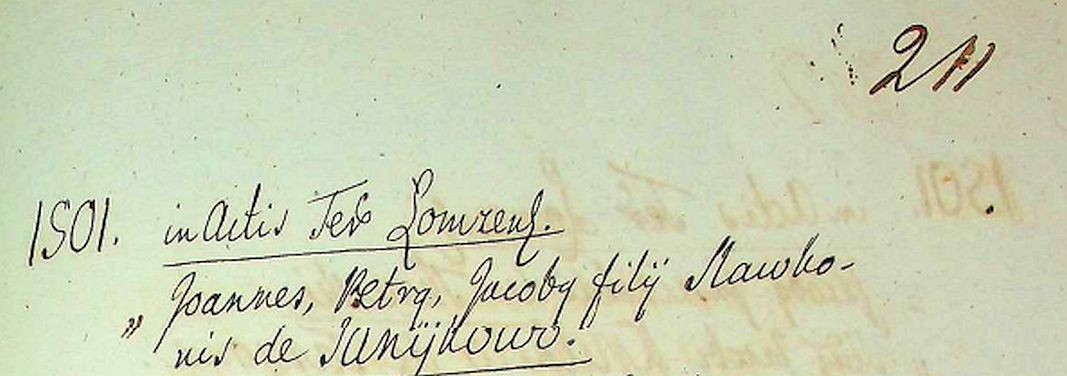 211
1501. in Actis Terr Lomzens.
Joannes, Petrq, Jacobq filij Slawko-
" nis de Janijkowo.